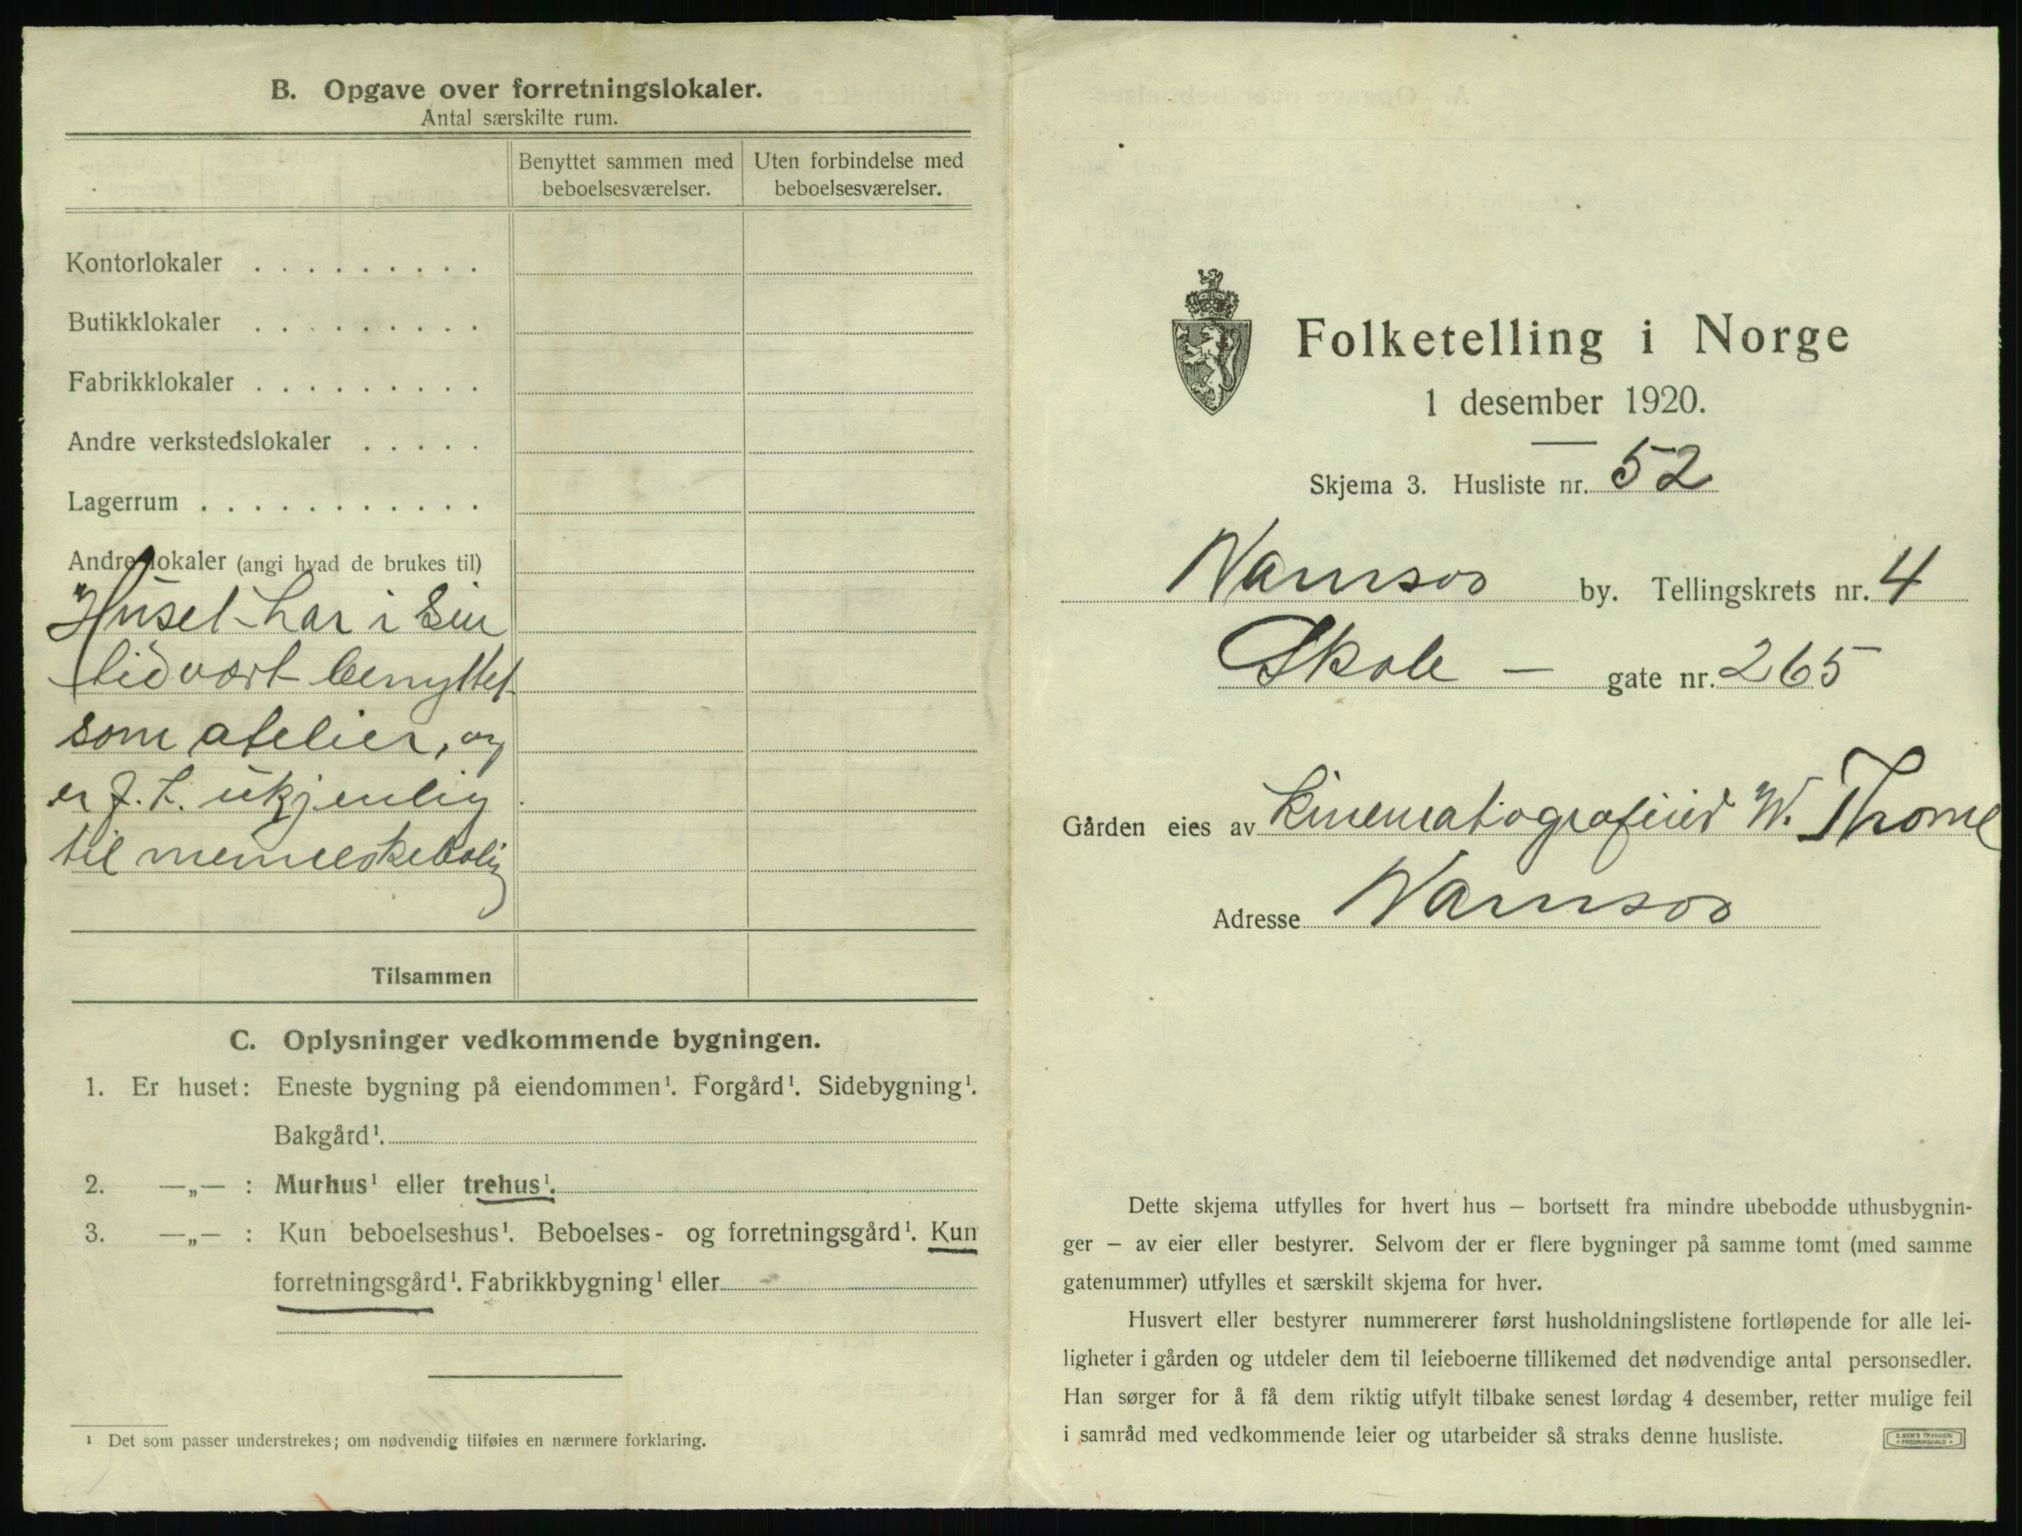 B. Opgave over forretningslokaler.
Antal særskilte rum.
Benyttet sammen med beboelsesværelser.
Uten forbindelse med beboelsesværelser.
Kontorlokaler . . . . . . . . .
Butikklokaler . . . . . . . . .
Fabrikklokaler . . . . . . . . .
Andre verkstedslokaler . . . . .
Lagerrum . . . . . . . . . . .
Andre lokaler (angi hvad de brukes til)
Huset har i sin
tid vært benyttet
som atelier, og
er f. t. ukjenlig
til menneskebolig
Tilsammen
C. Oplysninger vedkommende bygningen.
1. Er huset: Eneste bygning på eiendommen¹. Forgård¹. Sidebygning¹.
Bakgård¹.
2. —„— : Murhus¹ eller trehus¹.
3. —„— : Kun beboelseshus¹. Beboelses- og forretningsgård¹. Kun
forretningsgård¹. Fabrikkbygning¹ eller
¹ Det som passer understrekes; om nødvendig tilføies en nærmere forklaring.
Folketelling i Norge
1 desember 1920.
Skjema 3. Husliste nr. 52
Namsos by. Tellingskrets nr. 4
Skole — gate nr. 265
Gården eies av kinematografeier W. Thorne
Adresse Namsos
Dette skjema utfylles for hvert hus — bortsett fra mindre ubebodde uthusbygnin-
ger — av eier eller bestyrer. Selvom der er flere bygninger på samme tomt (med samme
gatenummer) utfylles et særskilt skjema for hver.
Husvert eller bestyrer nummererer først husholdningslistene fortløpende for alle lei-
ligheter i gården og utdeler dem til leieboerne tillikemed det nødvendige antal personsedler.
Han sørger for å få dem riktig utfylt tilbake senest lørdag 4 desember, retter mulige feil
i samråd med vedkommende leier og utarbeider så straks denne husliste.